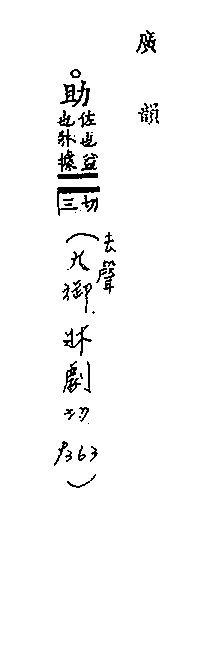 廣韻
○助佐也益也牀據切三（去聲九御.牀劇切P363）